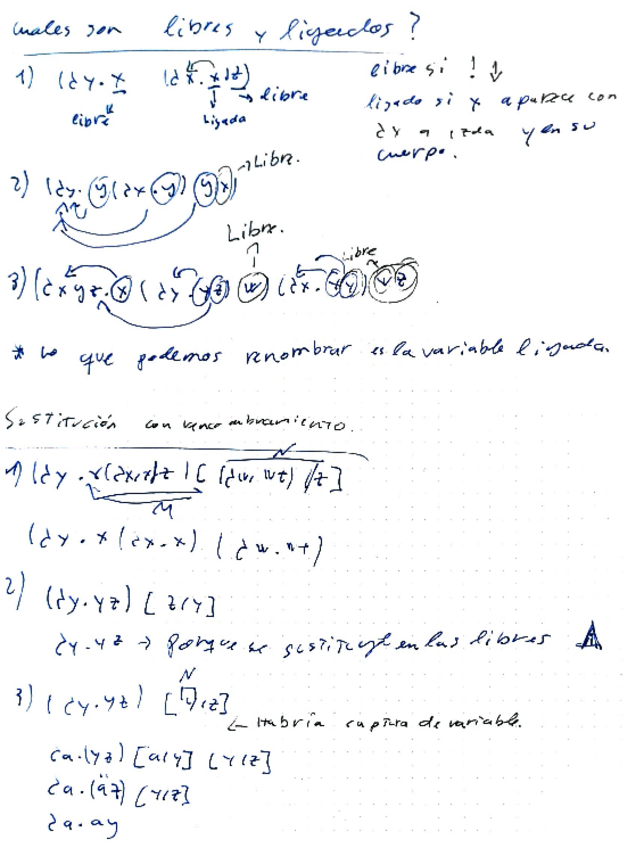 cuales son libres y ligados?
1) (λy.x (λx.x)z)
libre Ligada libre
libre si !
ligado si x aparece con
λx a izda y en su
cuerpo.
2) (λy.y(λx.y) y x)
Libre.
Libre.
Libre
3) (λxyz.x (λy.yz) w) (λx.yy) vz
* Lo que podemos renombrar es la variable ligada.
Sustitución con renombramiento.
N
1) (λy.x(λx.x)z) [(λw.wt)/z]
M
(λy.x(λx.x) (λw.wt)
2) (λy.yz) [z/y]
λy.yz → porque se sustituye en las libres
N
3) (λy.yz) [y/z]
← Habría captura de variable.
λa.(yz) [a/y] [y/z]
λa.(az) [y/z]
λa.ay